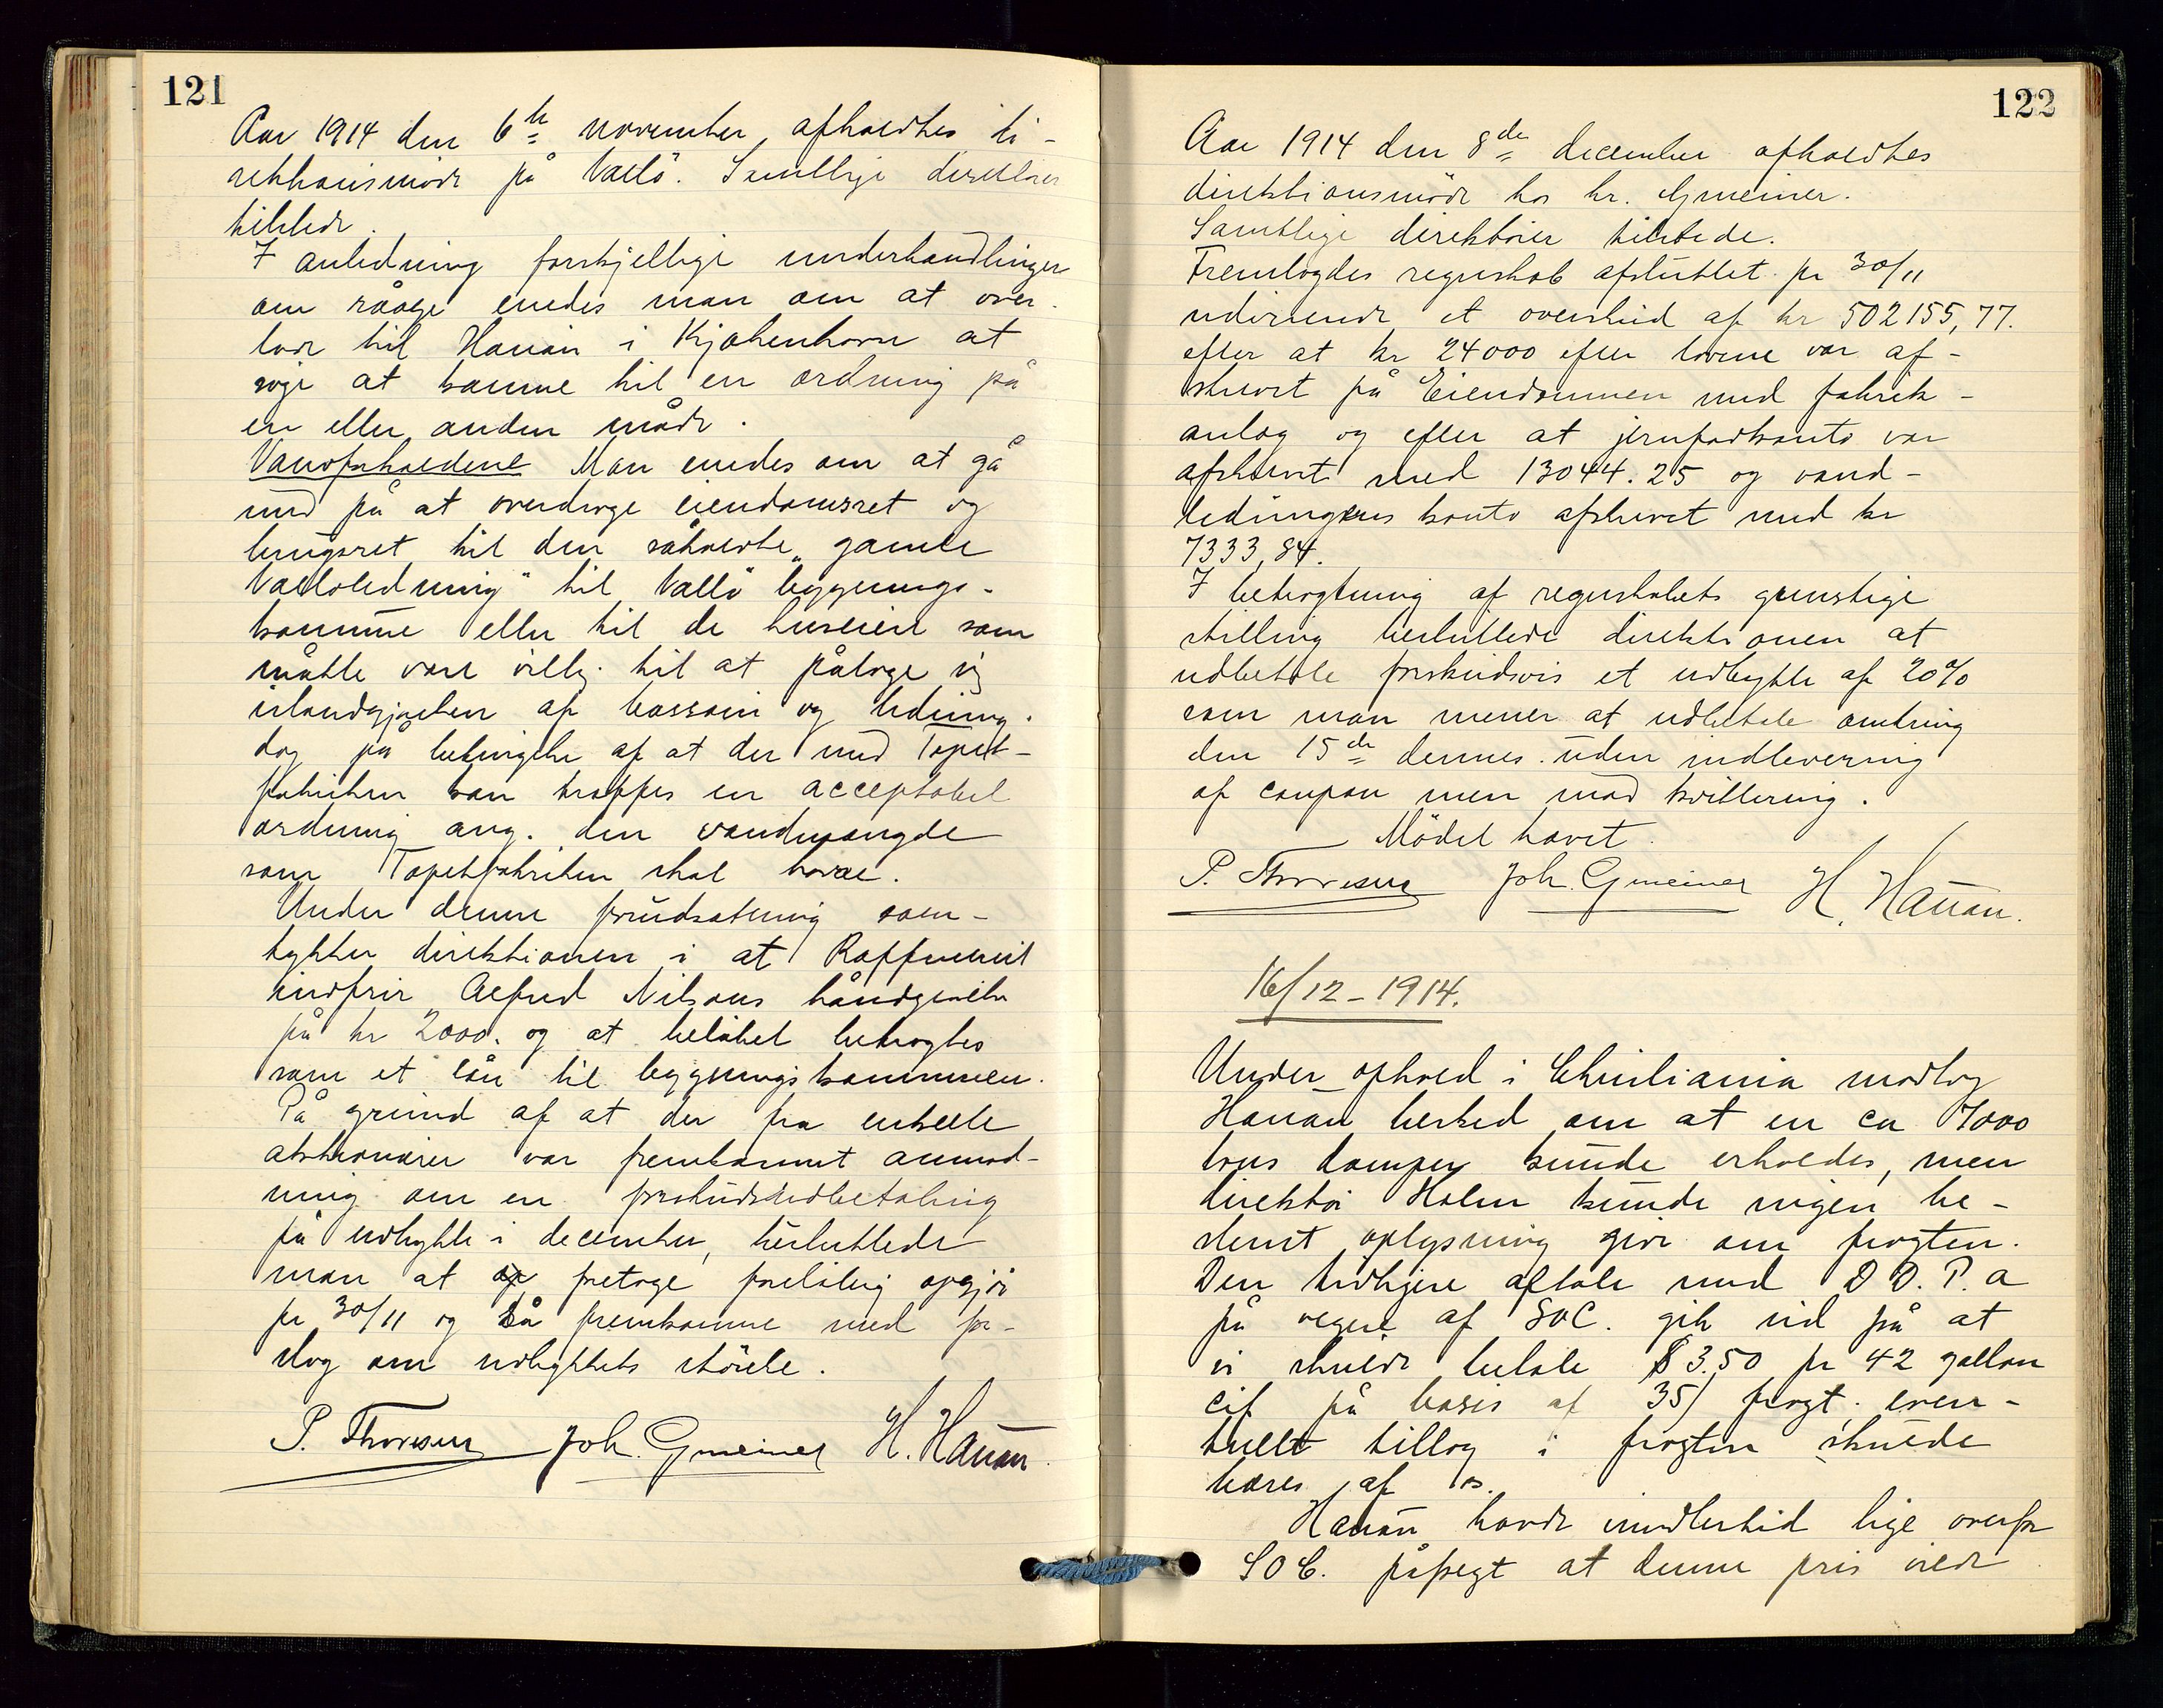 121
Aar 1914 den 6te november afholdtes di-
rektionsmöde på Vallö. Samtlige direktörer
tilstede.
I anledning forskjellige underhandlinger
om råolje enedes man om at over-
lade til Hauan i Kjøbenhavn at
söge at komme til en ordning på
en eller anden måde.
Vandforholdene Man enedes om at gå
med på at overdrage eiendomsret og
brugsret til den såkaldte „gamle
Valloledning" til Vallö bygnings-
komune eller til de huseiere som
måtte være villig til at påtage sig
istandgjøelsen af bassain og ledning.
dog på betingelse af at der med Tapet-
fabriken kan træffes en acceptabel
ordning ang. den vandmængde
som Tapetfabriken skal have.
Under denne forudsætning sam-
tykker direktionen i at Raffineriet
indfrir Alfred Nilsens håndgivelse
på kr 2000. og at belöbet betragtes
som et lån til bygningskommunen.
På grund af at der fra enkelte
aktionærer var fremkommet anmod-
ning om en forskudsudbetaling
på udbytte i december, besluttede
man at foretage foreløbig opgjör
pr 30/11 og så fremkomme med for-
slag om udbyttets störelse.
P. Thoresen Joh. Gmeiner H. Hauan.
122
Aar 1914 den 8de december afholdtes
direktionsmöde hos hr. Gmeiner.
Samtlige direktörer tilstede.
Fremlagdes regnskab afsluttet pr 30/11
udvisende et overskud af kr 502155,77.
efter at kr 24000 efter lovene var af-
skrevet på Eiendommen med fabrik-
anlæg og efter at jernfadkonto var
afskrevet med 13044.25 og vand-
ledningens konto afskrevet med kr
7333,84.
I betragtning af regnskabets gunstige
stilling besluttede direktionen at
udbetale forskudsvis et udbytte af 20%
som man mener at udbetale omkring
den 15de dennes. uden indlevering
af coupon men mod kvittering.
Mödet hævet.
P. Thoresen Joh. Gmeiner H. Hauan.
16/12-1914.
Under ophold i Christiania modtog
Hauan besked om at en ca 7000
tons damper kunde erholdes, men
direktör Holm kunde ingen be-
stemt oplysning give om fragten.
Den tidligere aftale med D.D.P.A
på vegne af SOC. gik ud på at
vi skulde betale $ 3.50 pr 42 gallon
cif på basis af 35/ fragt. even-
tuelt tillæg i fragten skulde
bæres af os.
Hauan havde imidlertid lige overfor
SOC. påpegt at denne pris vilde